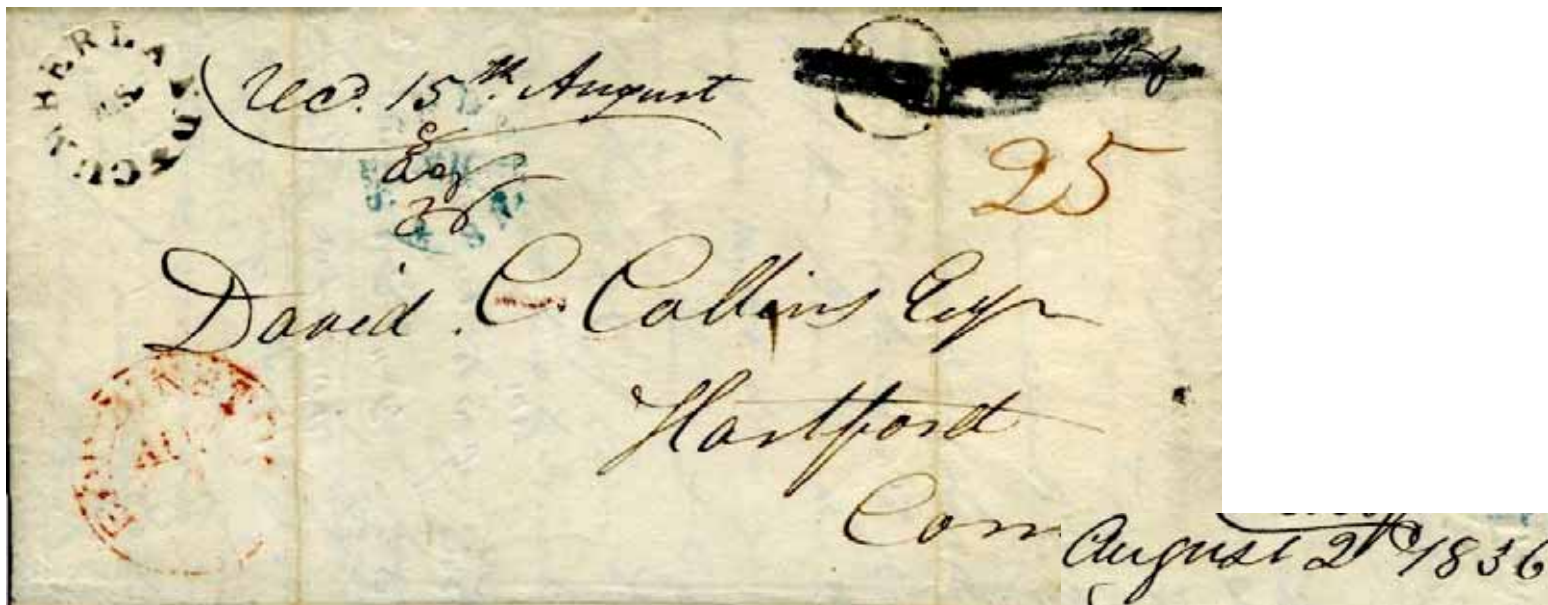 CUMBERLAND
Recd. 15th August
25
David C. Collins Esqr
Hartford
Conn
August 2d 1836